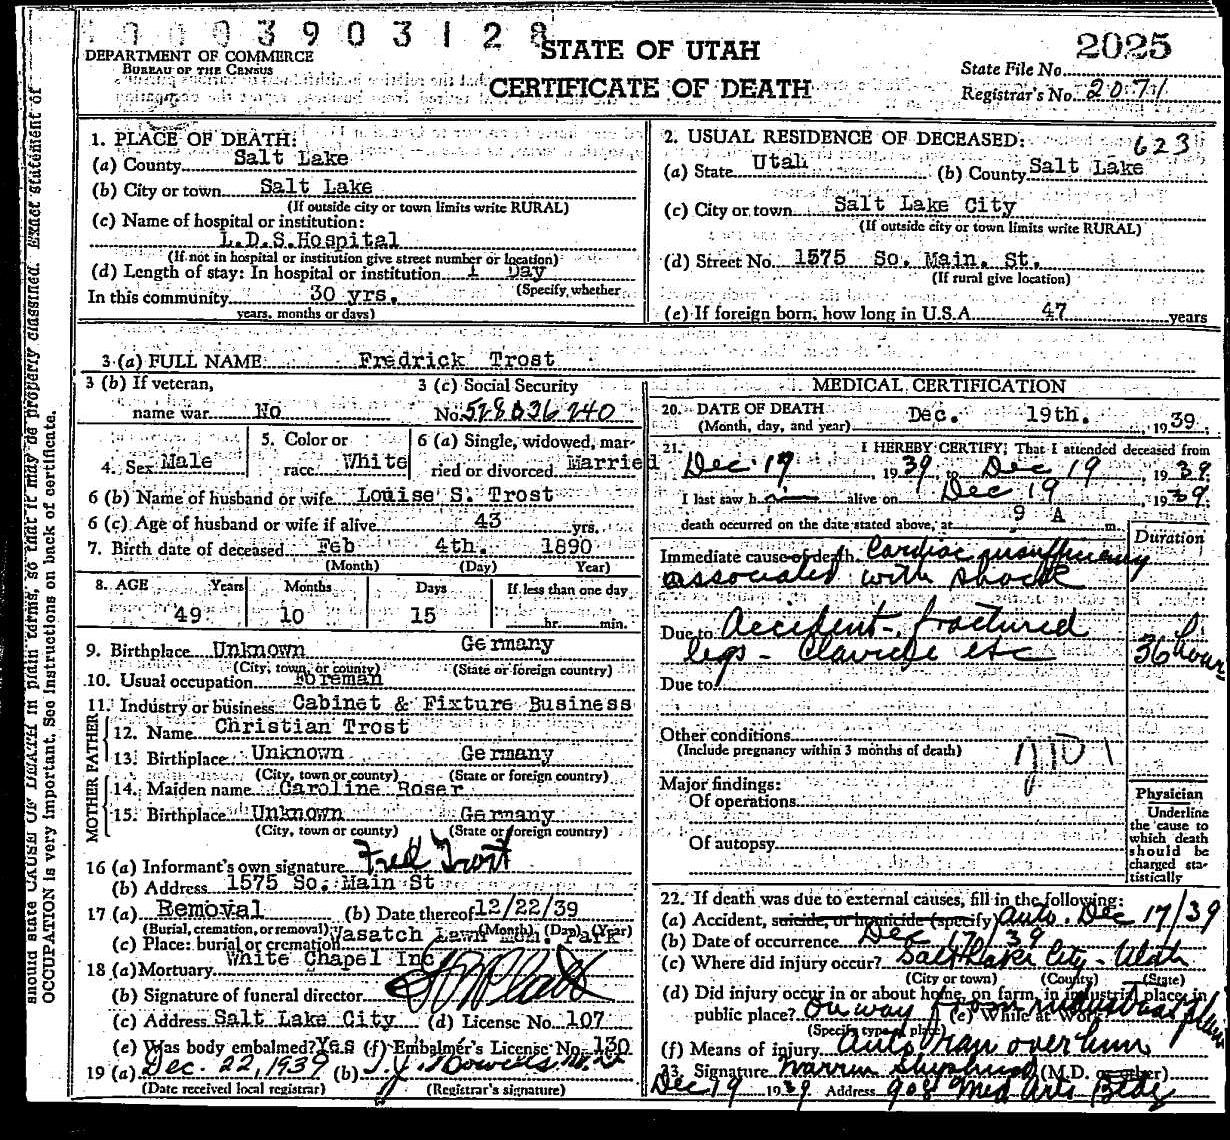 0003903128
STATE OF UTAH
2025
DEPARTMENT OF COMMERCE
BUREAU OF THE CENSUS
CERTIFICATE OF DEATH
State File No.
Registrar's No. 2071
1. PLACE OF DEATH:
(a) County Salt Lake
(b) City or town Salt Lake
(If outside city or town limits write RURAL)
(c) Name of hospital or institution:
L.D.S. Hospital
(If not in hospital or institution give street number or location)
(d) Length of stay: In hospital or institution 1 Day
(Specify whether
In this community 30 yrs.
years, months or days)
2. USUAL RESIDENCE OF DECEASED: 623
(a) State Utah (b) County Salt Lake
(c) City or town Salt Lake City
(If outside city or town limits write RURAL)
(d) Street No. 1575 So. Main. St.
(If rural give location)
(e) If foreign born, how long in U.S.A 47 years
3 (a) FULL NAME Fredrick Trost
3 (b) If veteran,
name war No
3 (c) Social Security
No. 528036240
4. Sex Male
5. Color or
race White
6 (a) Single, widowed, mar-
ried or divorced. Married
6 (b) Name of husband or wife Louise S. Trost
6 (c) Age of husband or wife if alive 43 yrs.
7. Birth date of deceased Feb 4th. 1890
(Month) (Day) Year)
8. AGE Years Months Days If less than one day
49 10 15 hr. min.
9. Birthplace Unknown Germany
(City, town, or county) (State or foreign country)
10. Usual occupation Foreman
11. Industry or business Cabinet & Fixture Business
FATHER
12. Name Christian Trost
13. Birthplace Unknown Germany
(City, town or county) (State or foreign country)
MOTHER
14. Maiden name Caroline Roser
15. Birthplace Unknown Germany
(City, town or county) (State or foreign country)
16 (a) Informant's own signature Fred Trost
(b) Address 1575 So. Main St
17 (a) Removal (b) Date thereof 12/22/39
(Burial, cremation, or removal) (Month) (Day) (Year)
(c) Place: burial or cremation Wasatch Lawn Mem. Park
18 (a) Mortuary White Chapel Inc
(b) Signature of funeral director
(c) Address Salt Lake City (d) License No. 107
(e) Was body embalmed? Yes (f) Embalmer's License No. 130
19 (a) Dec. 22, 1939 (b)
(Date received local registrar) (Registrar's signature)
MEDICAL CERTIFICATION
20. DATE OF DEATH Dec. 19th. 1939
(Month, day, and year)
21. I HEREBY CERTIFY: That I attended deceased from
Dec 19, 1939, to Dec 19, 1939.
I last saw him alive on Dec 19 1939.
death occurred on the date stated above, at 9 A m.
Duration
Immediate cause of death Cardiac insufficiency
associated with shock
Due to Accident - fractured
legs - Clavicle etc
36 hours
Due to
Other conditions
(Include pregnancy within 3 months of death)
Major findings:
Of operations
Of autopsy
Physician
Underline
the cause to
which death
should be
charged sta-
tistically
22. If death was due to external causes, fill in the following:
(a) Accident, suicide or homicide (specify) Auto. Dec 17/39
(b) Date of occurrence Dec 17/39
(c) Where did injury occur? Salt Lake City - Utah
(City or town) (County) (State)
(d) Did injury occur in or about home, on farm, in industrial place, in
public place? On way from industrial plant
(Specify type of place) (e) While at Work
(f) Means of injury Auto ran over him
23. Signature Warren Shepherd (M.D. or other)
Dec 19 1939 Address 908 Med Arts Bldg
should state CAUSE OF DEATH in plain terms, so that it may be properly classified. Exact statement of
OCCUPATION is very important. See instructions on back of certificate.